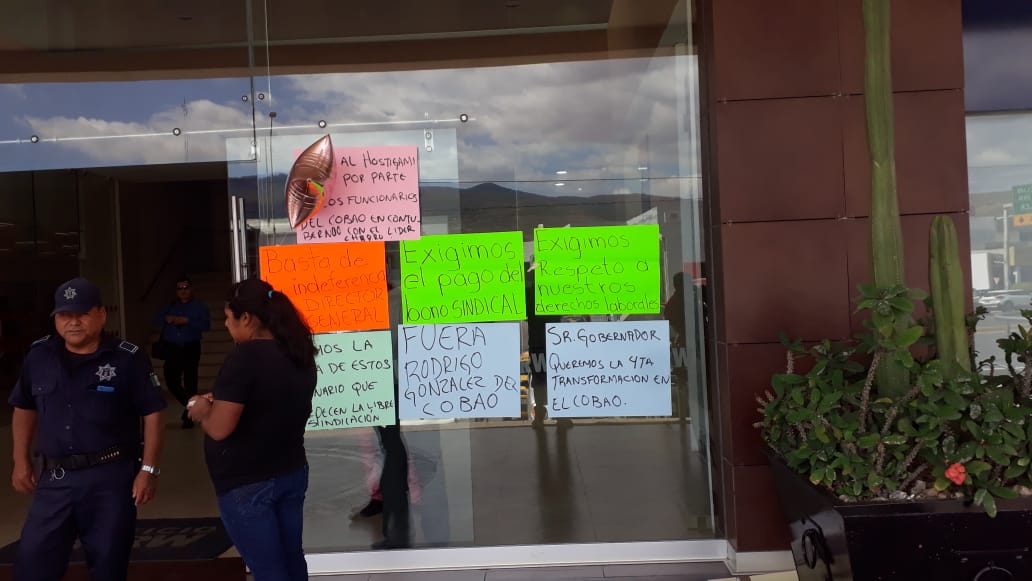 AL HOSTIGAMI
POR PARTE
LOS FUNCIONARIOS
DEL COBAO EN CONTU-
BERNIO CON EL LIDER
CHARRO
Basta de
indeferenci
DIRECTOR
GENERAL
Exigimos
el pago del
bono SINDICAL
Exigimos
Respeto a
nuestros
derechos laborales
MOS LA
A DE ESTOS
NARIO QUE
DECEN LA LIBRE
SINDICACIÓN
FUERA
RODRIGO
GONZALEZ DEL
COBAO
SR. GOBERNADOR
QUEREMOS LA 4TA
TRANSFORMACION EN
EL COBAO.